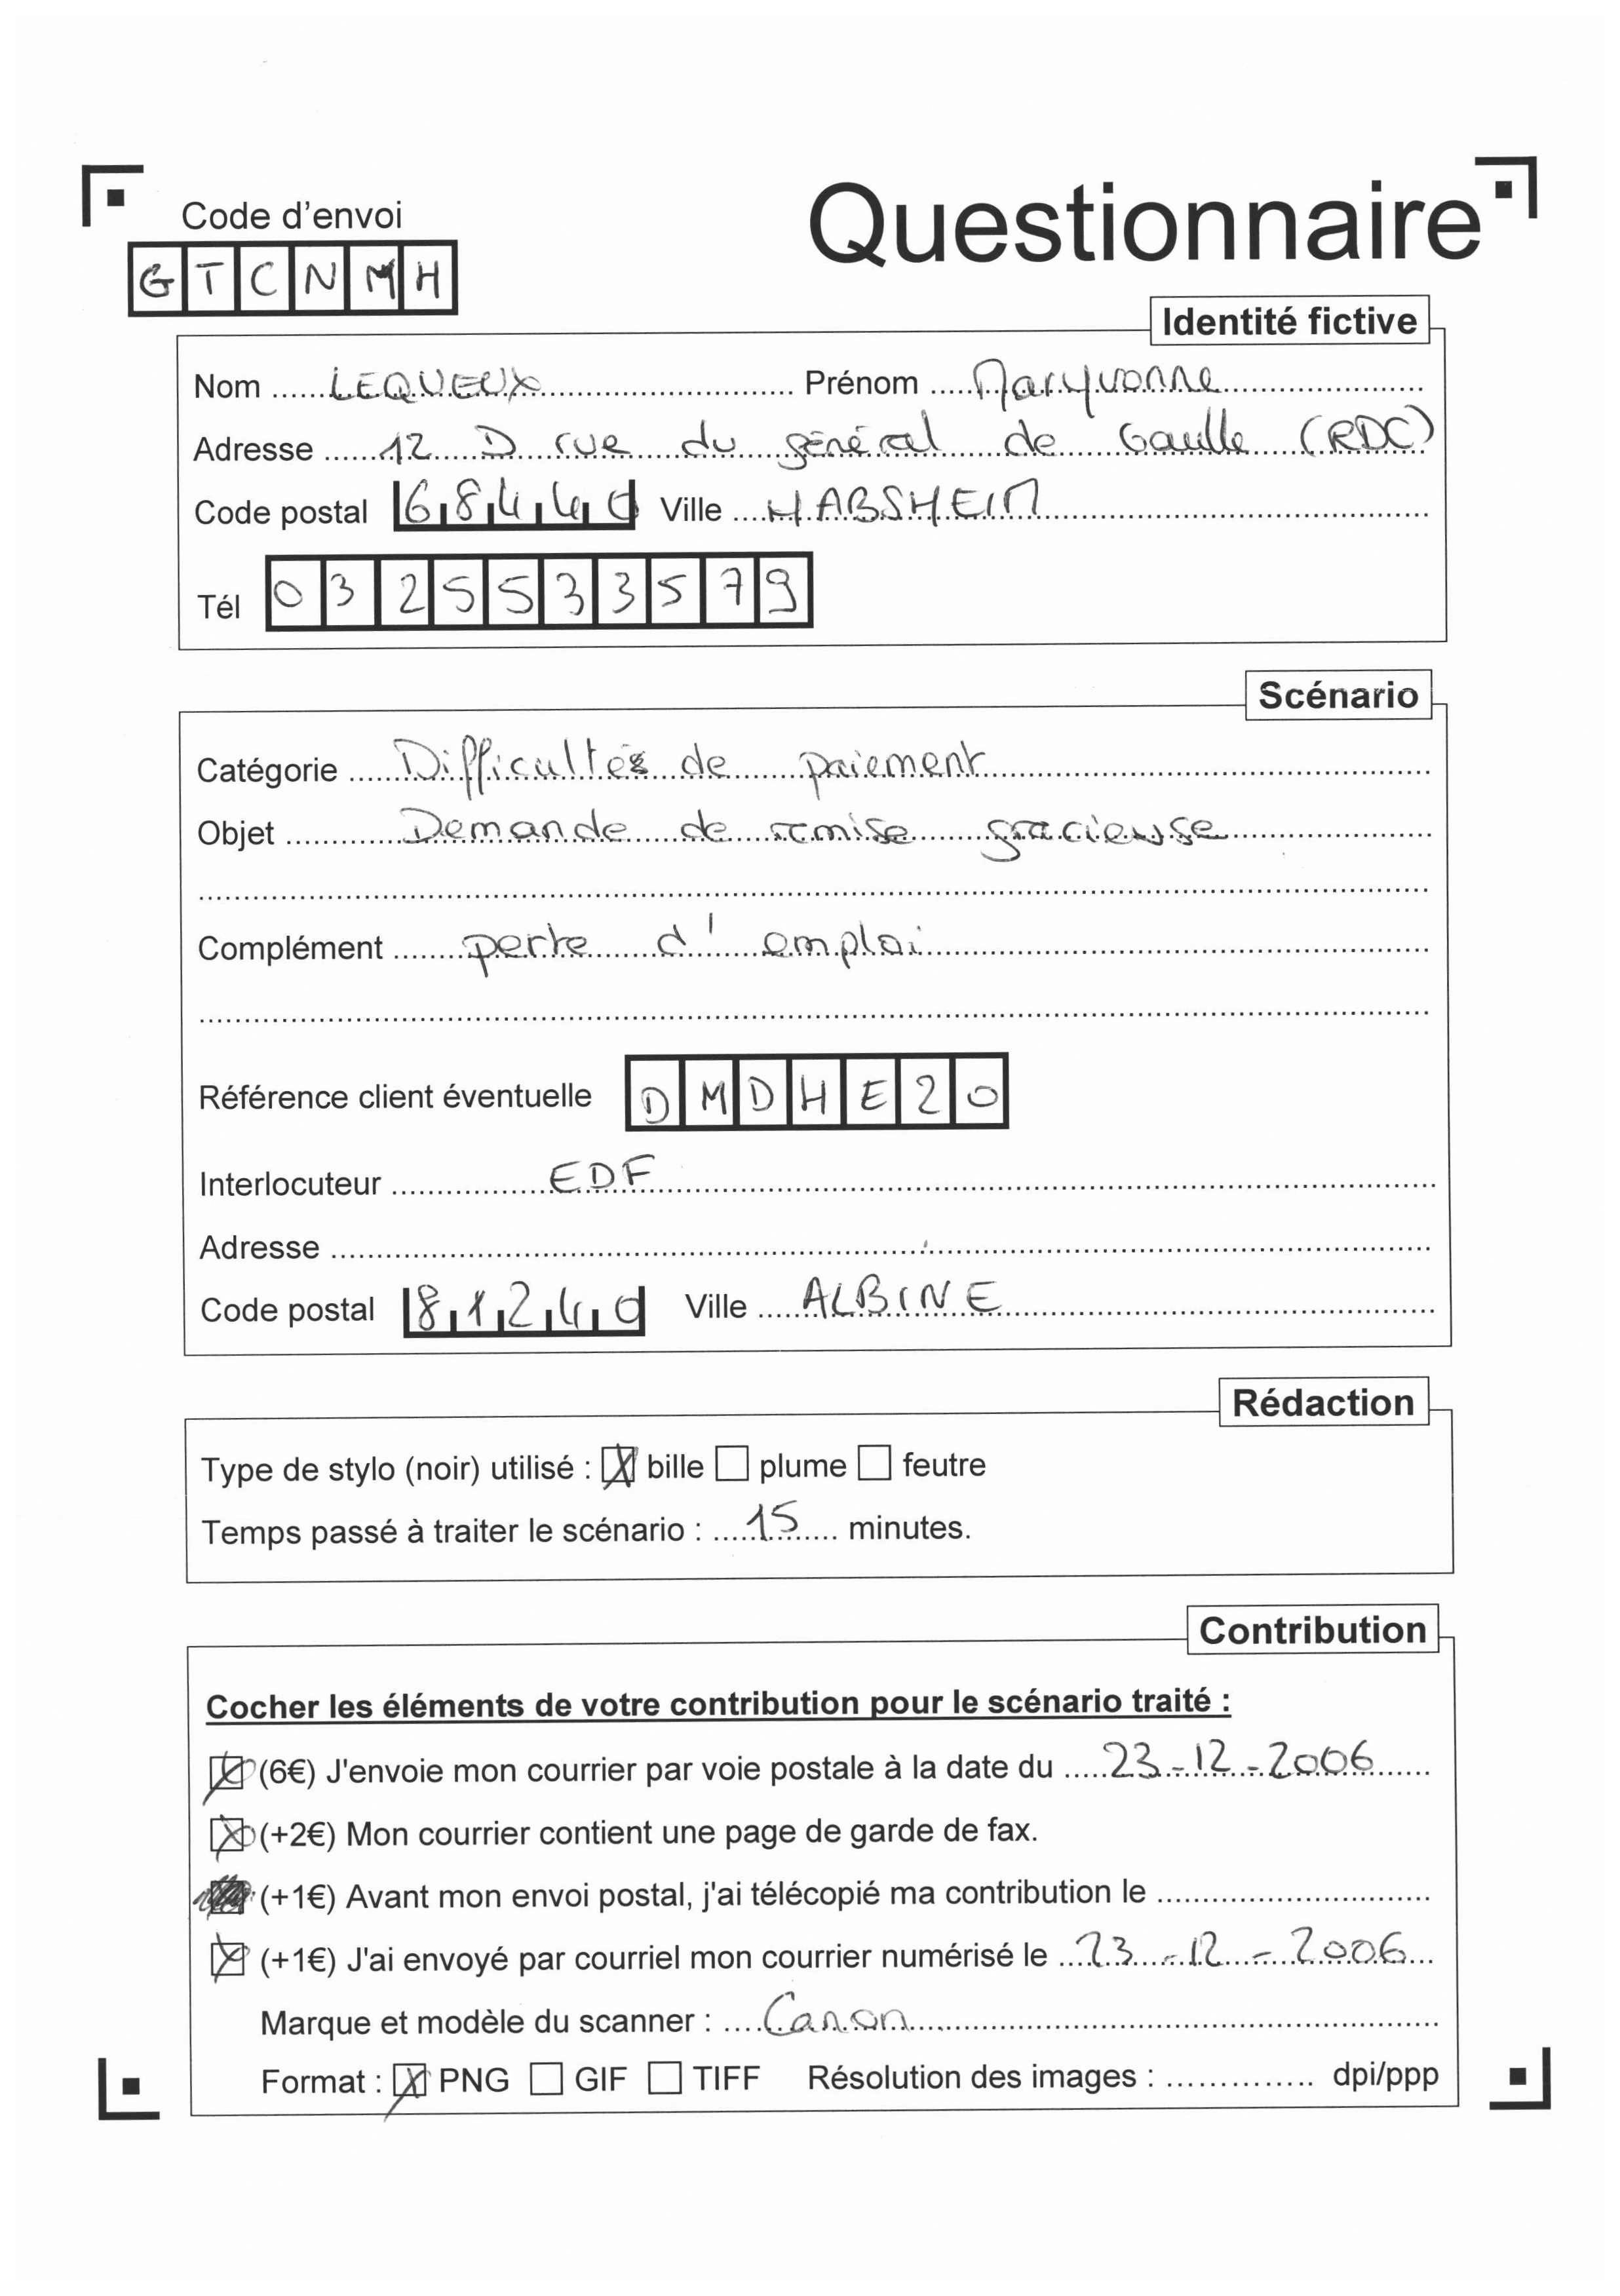 Code d'envoi
Questionnaire
GTCNMH
Identité fictive
Nom LEQUEUX Prénom Maryvonne
Adresse 12 D rue du général de Gaulle (RDC)
Code postal 68440 Ville HABSHEIM
Tél 0325533579
Scénario
Catégorie Difficultés de paiement
Objet Demande de remise gracieuse
Complément perte d'emploi
Référence client éventuelle DMDHE20
Interlocuteur EDF
Adresse
Code postal 81240 Ville ALBINE
Rédaction
Type de stylo (noir) utilisé : bille plume feutre
Temps passé à traiter le scénario : 15 minutes.
Contribution
Cocher les éléments de votre contribution pour le scénario traité :
(6€) J'envoie mon courrier par voie postale à la date du 23-12-2006
(+2€) Mon courrier contient une page de garde de fax.
(+1€) Avant mon envoi postal, j'ai télécopié ma contribution le
(+1€) J'ai envoyé par courriel mon courrier numérisé le 23-12-2006
Marque et modèle du scanner : Canon
Format : PNG GIF TIFF Résolution des images : dpi/ppp